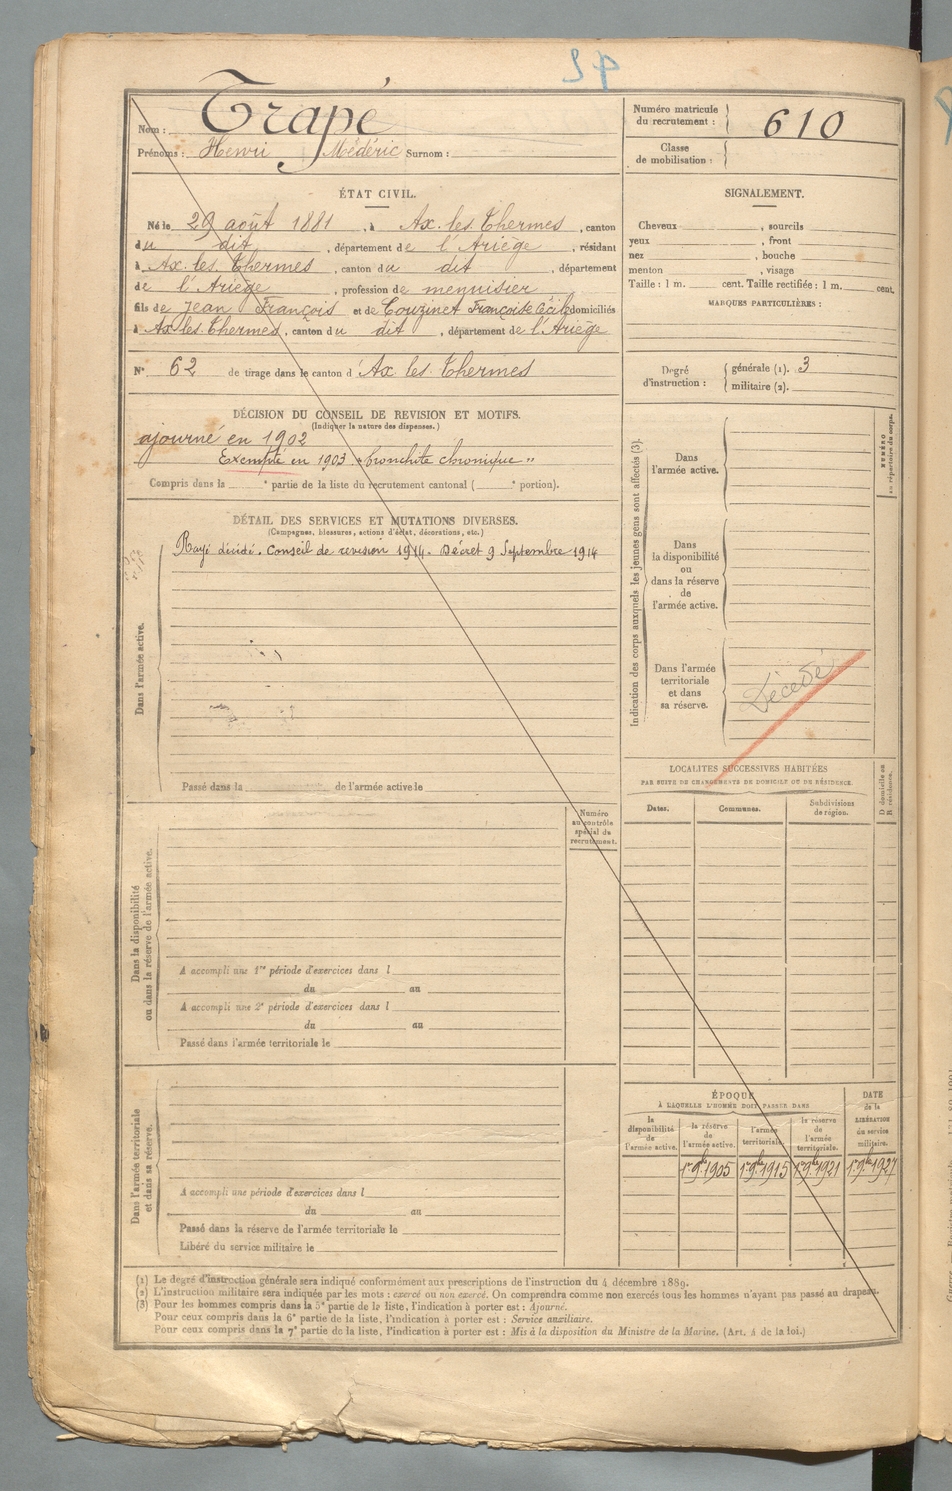 Trapé
Nom :
Prénoms : Henri Médéric Surnom :
Numéro matricule
du recrutement : 610
Classe
de mobilisation :
ÉTAT CIVIL.
Né le 29 août 1881, à Ax. les. Thermes, canton
du dit, département de l'Ariège, résidant
à Ax. les. Thermes, canton du dit, département
de l'Ariège, profession de menuisier
fils de Jean François et de Couzinet Françoise Cécile domiciliés
à Ax les. Thermes, canton du dit, département de l'Ariège
N° 62 de tirage dans le canton d'Ax. les. Thermes
SIGNALEMENT.
Cheveux , sourcils
yeux , front
nez , bouche
menton , visage
Taille : 1 m. cent. Taille rectifiée : 1 m. cent.
MARQUES PARTICULIÈRES :
Degré
d'instruction :
générale (1). 3
militaire (2).
DÉCISION DU CONSEIL DE REVISION ET MOTIFS.
(Indiquer la nature des dispenses.)
ajourné en 1902
Exempté en 1903 "bronchite chronique"
Compris dans la ° partie de la liste du recrutement cantonal ( ° portion).
DÉTAIL DES SERVICES ET MUTATIONS DIVERSES.
(Campagnes, blessures, actions d'éclat, décorations, etc.)
Rayé décédé. Conseil de revision 1914. Décret 9 Septembre 1914
Dans l'armée active.
Passé dans la de l'armée active le
Indication des corps auxquels les jeunes gens sont affectés (3).
Dans
l'armée active.
NUMÉRO
au répertoire du corps.
Dans
la disponibilité
ou
dans la réserve
de
l'armée active.
Dans l'armée
territoriale
et dans
sa réserve.
Décédé
LOCALITÉS SUCCESSIVES HABITÉES
PAR SUITE DE CHANGEMENTS DE DOMICILE OU DE RÉSIDENCE.
Dates.
Communes.
Subdivisions
de région.
D domicile ou
R résidence.
Numéro
au contrôle
spécial du
recrutement.
Dans la disponibilité
ou dans la réserve de l'armée active.
A accompli une 1re période d'exercices dans l
du au
A accompli une 2e période d'exercices dans l
du au
Passé dans l'armée territoriale le
Dans l'armée territoriale
et dans sa réserve.
A accompli une période d'exercices dans l
du au
Passé dans la réserve de l'armée territoriale le
Libéré du service militaire le
ÉPOQUE
À LAQUELLE L'HOMME DOIT PASSER DANS
la
disponibilité
de
l'armée active.
la réserve
de
l'armée active.
l'armée
territoriale.
la réserve
de
l'armée
territoriale.
DATE
de la
LIBÉRATION
du service
militaire.
1er 9bre 1905 1er 9bre 1915 1er 9bre 1921 1er 9bre 1927
(1) Le degré d'instruction générale sera indiqué conformément aux prescriptions de l'instruction du 4 décembre 1889.
(2) L'instruction militaire sera indiquée par les mots : exercé ou non exercé. On comprendra comme non exercés tous les hommes n'ayant pas passé au drapeau.
(3) Pour les hommes compris dans la 5e partie de la liste, l'indication à porter est : Ajourné.
Pour ceux compris dans la 6e partie de la liste, l'indication à porter est : Service auxiliaire.
Pour ceux compris dans la 7e partie de la liste, l'indication à porter est : Mis à la disposition du Ministre de la Marine. (Art. 4 de la loi.)